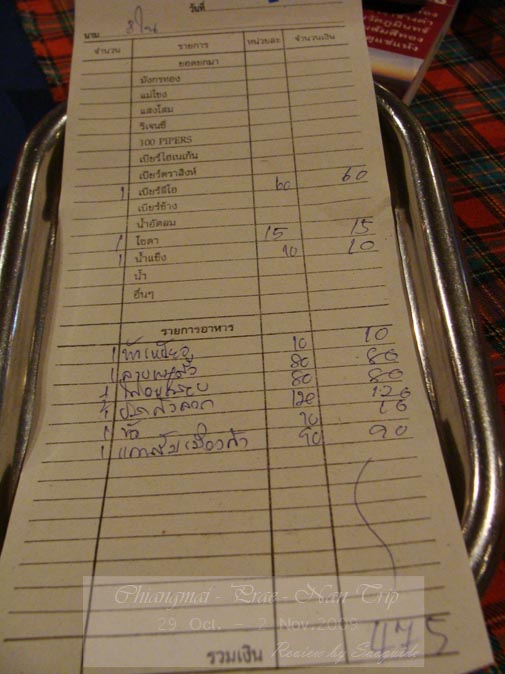 วันที่
นาม
จำนวน รายการ หน่วยละ จำนวนเงิน
ยอดยกมา
มังกรทอง
แม่โขง
แสงโสม
รีเจนซี่
100 PIPERS
เบียร์ไฮเนเก้น
เบียร์ตราสิงห์
1 เบียร์ลีโอ 60 60
เบียร์ช้าง
น้ำอัดลม
1 โซดา 15 15
1 น้ำแข็ง 10 10
น้ำ
อื่นๆ
รายการอาหาร
1 ข้าวเหนียว 10 10
1 80 80
1 80 80
1 120 120
1 10 10
1 90 90
Chiangmai - Prae - Nan Trip
29 Oct. - 2 Nov.2009
รวมเงิน 475
Review by